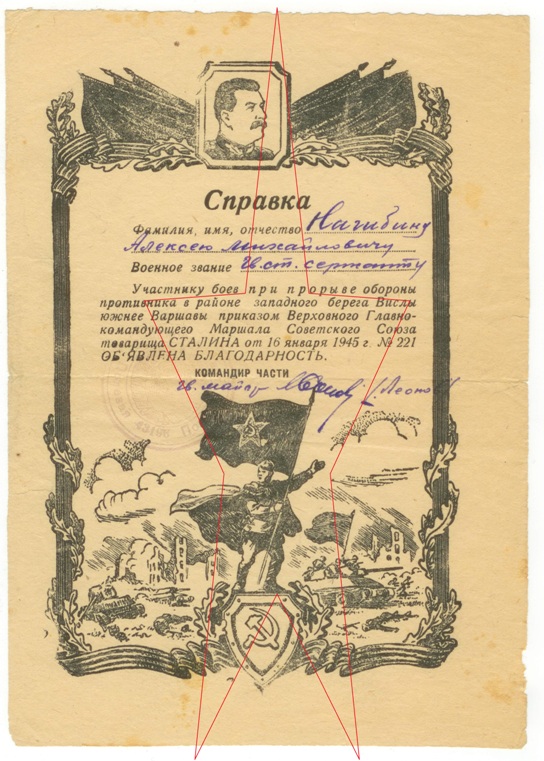 Справка
Фамилия, имя, отчество Нагибину
Алексею Михайловичу
Военное звание Гв. ст. сержанту
Участнику боев при прорыве обороны
противника в районе западного берега Вислы
южнее Варшавы приказом Верховного Главно-
командующего Маршала Советского Союза
товарища СТАЛИНА от 16 января 1945 г. № 221
ОБ'ЯВЛЕНА БЛАГОДАРНОСТЬ.
КОМАНДИР ЧАСТИ
Гв. майор